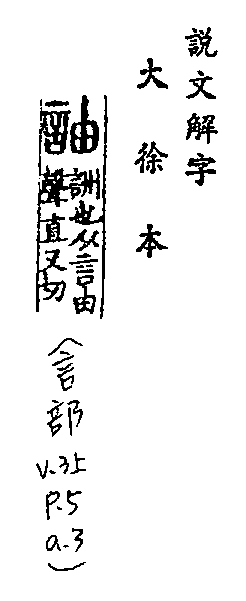 説文解字
大徐本
詶也从言由
聲直又切
(言部
v.3上
p.5
a.3)